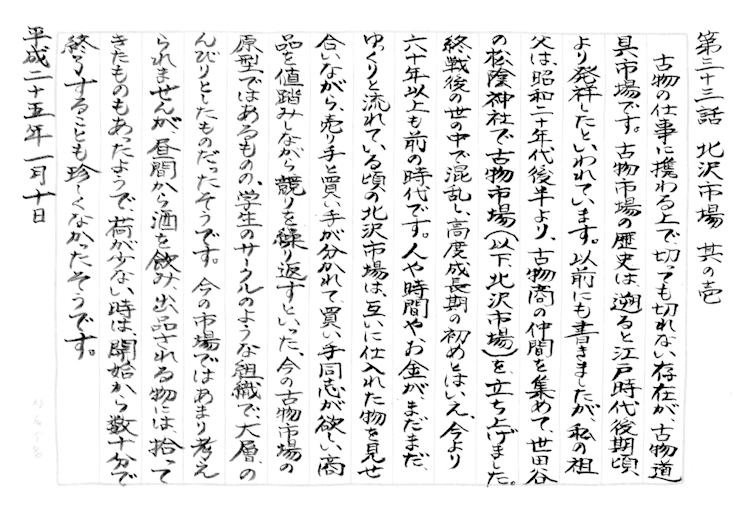 第三十三話　北沢市場　其の壱
古物の仕事に携わる上で、切っても切れない存在が、古物道
具市場です。古物市場の歴史は、遡ると江戸時代後期頃
より発祥したといわれています。以前にも書きましたが、私の祖
父は、昭和二十年代後半より、古物商の仲間を集めて、世田谷
の松陰神社で古物市場（以下、北沢市場）を、立ち上げました。
終戦後の世の中で混乱し、高度成長期の初めとはいえ、今より
六十年以上も前の時代です。人や時間や、お金が、まだまだ、
ゆっくりと流れている頃の北沢市場は、互いに仕入れた物を見せ
合いながら、売り手と買い手が分かれて、買い手同志が欲しい商
品を値踏みしながら競りを繰り返すといった、今の古物市場の
原型ではあるものの、学生のサークルのような組織で、大層、の
んびりとしたものだったそうです。今の市場ではあまり考え
られませんが、昼間から酒を飲み、出品される物には、拾って
きたものもあったようで、荷が少ない時は、開始から数十分で
終りすることも珍しくなかったそうです。
平成二十五年一月十日